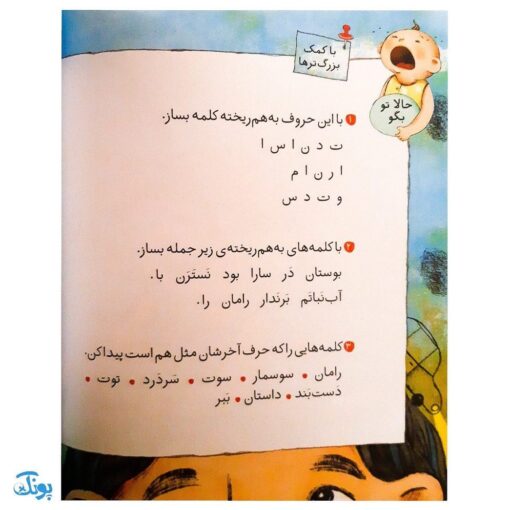 با کمک
بزرگ‌ترها
حالا تو
بگو
۱ با این حروف به‌هم‌ریخته کلمه بساز.
ت د ن ا س ا
ا ر ن ا م
و ت د س
۲ با کلمه‌های به‌هم‌ریخته‌ی زیر جمله بساز.
بوستان دَر سارا بود نَستَرَن با.
آب‌نَباتَم بَرنَدار رامان را.
۳ کلمه‌هایی را که حرف آخرشان مثل هم است پیدا کن.
رامان • سوسمار • سوت • سَردَرد • توت •
دَست‌بَند • داستان • بَبر
پونک